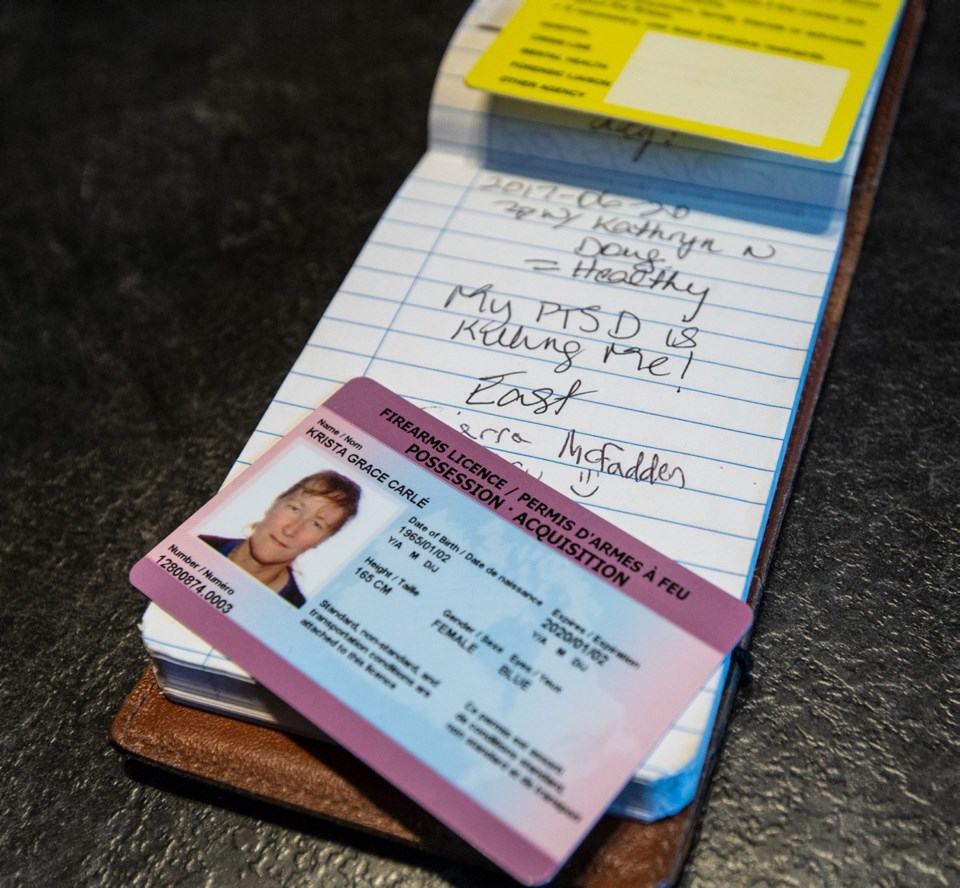 HOSPITAL
CRISIS LINE
MENTAL HEALTH
FORENSIC LIAISON
OTHER AGENCY
day!
2017-06-20
w/ Kathryn N
Doug
= Healthy
My PTSD is
Killing Me!
East
McFadden
FIREARMS LICENCE / PERMIS D'ARMES À FEU
POSSESSION · ACQUISITION
Name / Nom
KRISTA GRACE CARLÉ
Date of Birth / Date de naissance
1965/01/02
Y/A M D/J
Expires / Expiration
2020/01/02
Y/A M D/J
Height / Taille
165 CM
Gender / Sexe
FEMALE
Eyes / Yeux
BLUE
Number / Numéro
12800874.0003
Standard, non-standard, and
transportation conditions are
attached to this licence
Ce permis est assorti
de conditions standard,
non standard et de transport